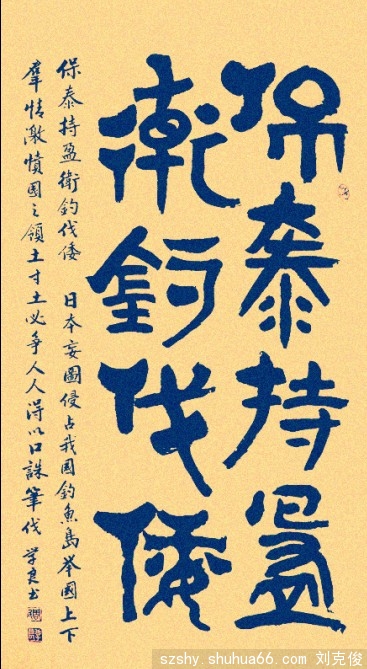 保泰持盈
衛釣伐倭
保泰持盈衛釣伐倭 日本妄圖侵占我国釣魚島举國上下
羣情激憤國之領土寸土必爭人人得以口誅筆伐 学良书
szshy.shuhua66.com 刘克俊